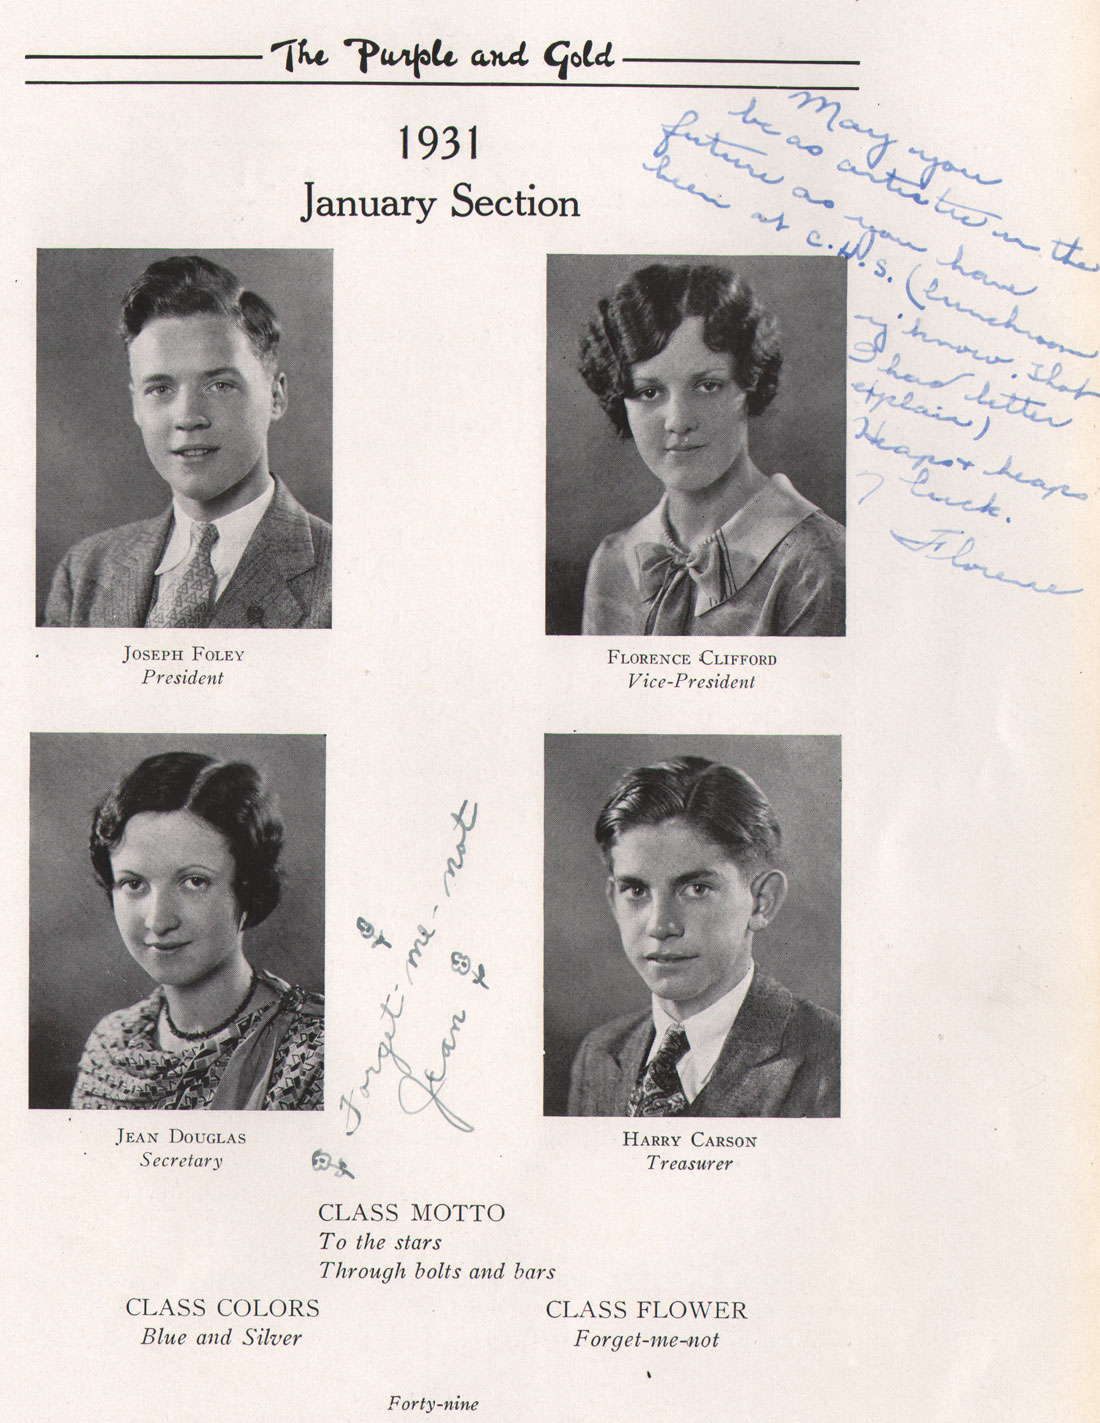 The Purple and Gold
1931
January Section
May you
be as artistic in the
future as you have
been at C.H.S. (lunchroom
y'know. That
I had better
explain)
Heaps + heaps
of luck.
Florence
JOSEPH FOLEY
President
FLORENCE CLIFFORD
Vice-President
Forget-me-not
Jean
JEAN DOUGLAS
Secretary
HARRY CARSON
Treasurer
CLASS MOTTO
To the stars
Through bolts and bars
CLASS COLORS
Blue and Silver
CLASS FLOWER
Forget-me-not
Forty-nine